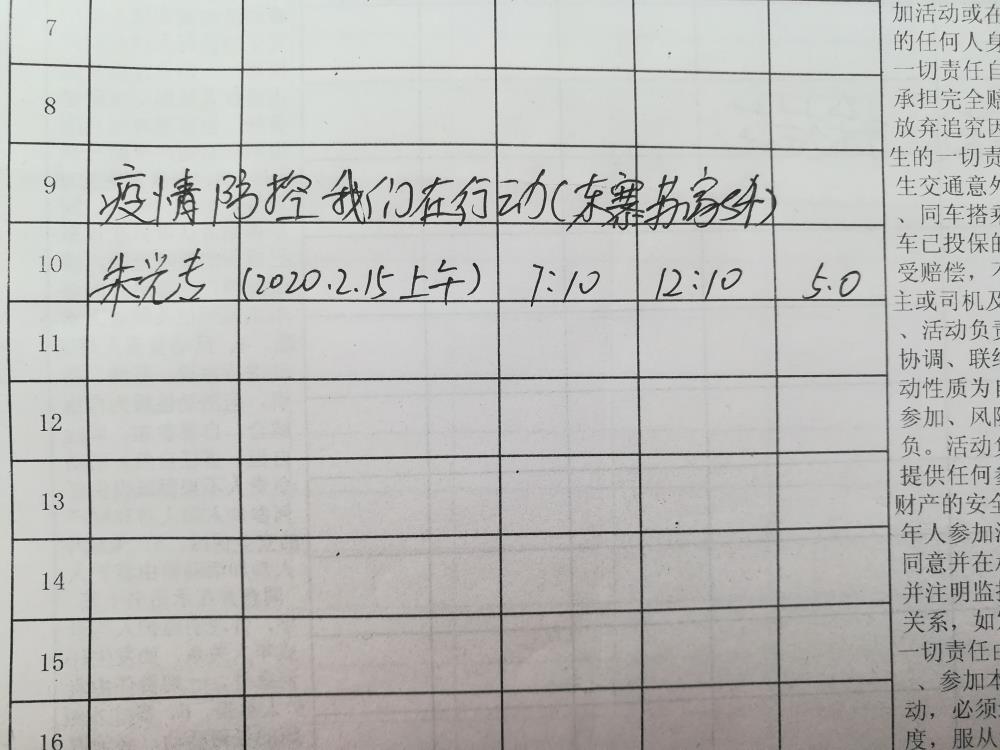 7
8
9 疫情防控我们在行动(东寨苏家外)
10 朱光志 (2020.2.15上午) 7:10 12:10 5.0
11
12
13
14
15
16
加活动或在
的任何人身
一切责任自
承担完全赔
放弃追究因
生的一切责
生交通意外
、同车搭乘
车已投保的
受赔偿，不
主或司机及
、活动负责
协调、联络
动性质为自
参加、风险
负。活动负
提供任何
财产的安全
年人参加活
同意并在
并注明监护
关系，如
一切责任由
、参加本
动，必须
度，服从